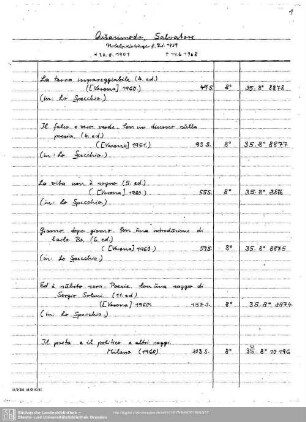 1
Quasimodo, Salvatore
Nobelpreisträger f. Lit. 1959
* 20.8.1901 † 14.6.1968
La terra impareggiabile (4. ed)
([Verona] 1960.) 8° 35. 8° 8878
(in: Lo Specchio.)
Il falso e vero verde. Con un discorso sulla
poesia. (4. ed)
([Verona] 1961.) 93 S. 8° 35. 8° 8877
(in: Lo Specchio.)
La vita non è sogno (5. ed)
([Verona] 1960.) 55 S. 8° 35. 8° 8876
(in: Lo Specchio.)
Giorno dopo giorno. Con una introduzione di
Carlo Bo. (6. ed)
([Verona] 1960.) 59 S. 8° 35. 8° 8875
(in: Lo Specchio.)
Ed è subito sera. Poesie. Con un saggio di
Sergio Solmi. (11. ed)
([Verona] 1960.) 8° 35. 8° 8874
(in: Lo Specchio.)
Il poeta e il politico e altri saggi.
Milano (1960) 8° 35. 8°